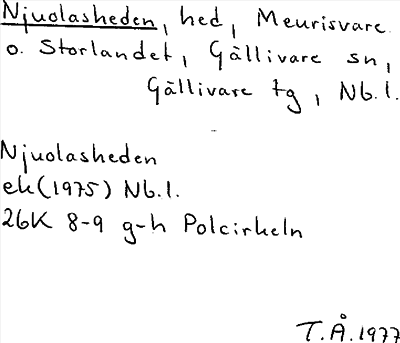 Njuolasheden, hed, Meurisvare
o. Storlandet, Gällivare sn,
Gällivare tg, Nb.l.
Njuolasheden
ek(1975) Nb.l.
26K 8-9 g-h Polcirkeln
T.Å.1977